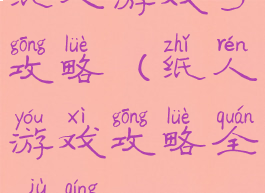 gōng lüè zhǐ rén
攻略（纸人
yóu xì gōng lüè quán
游戏攻略全
jù qíng